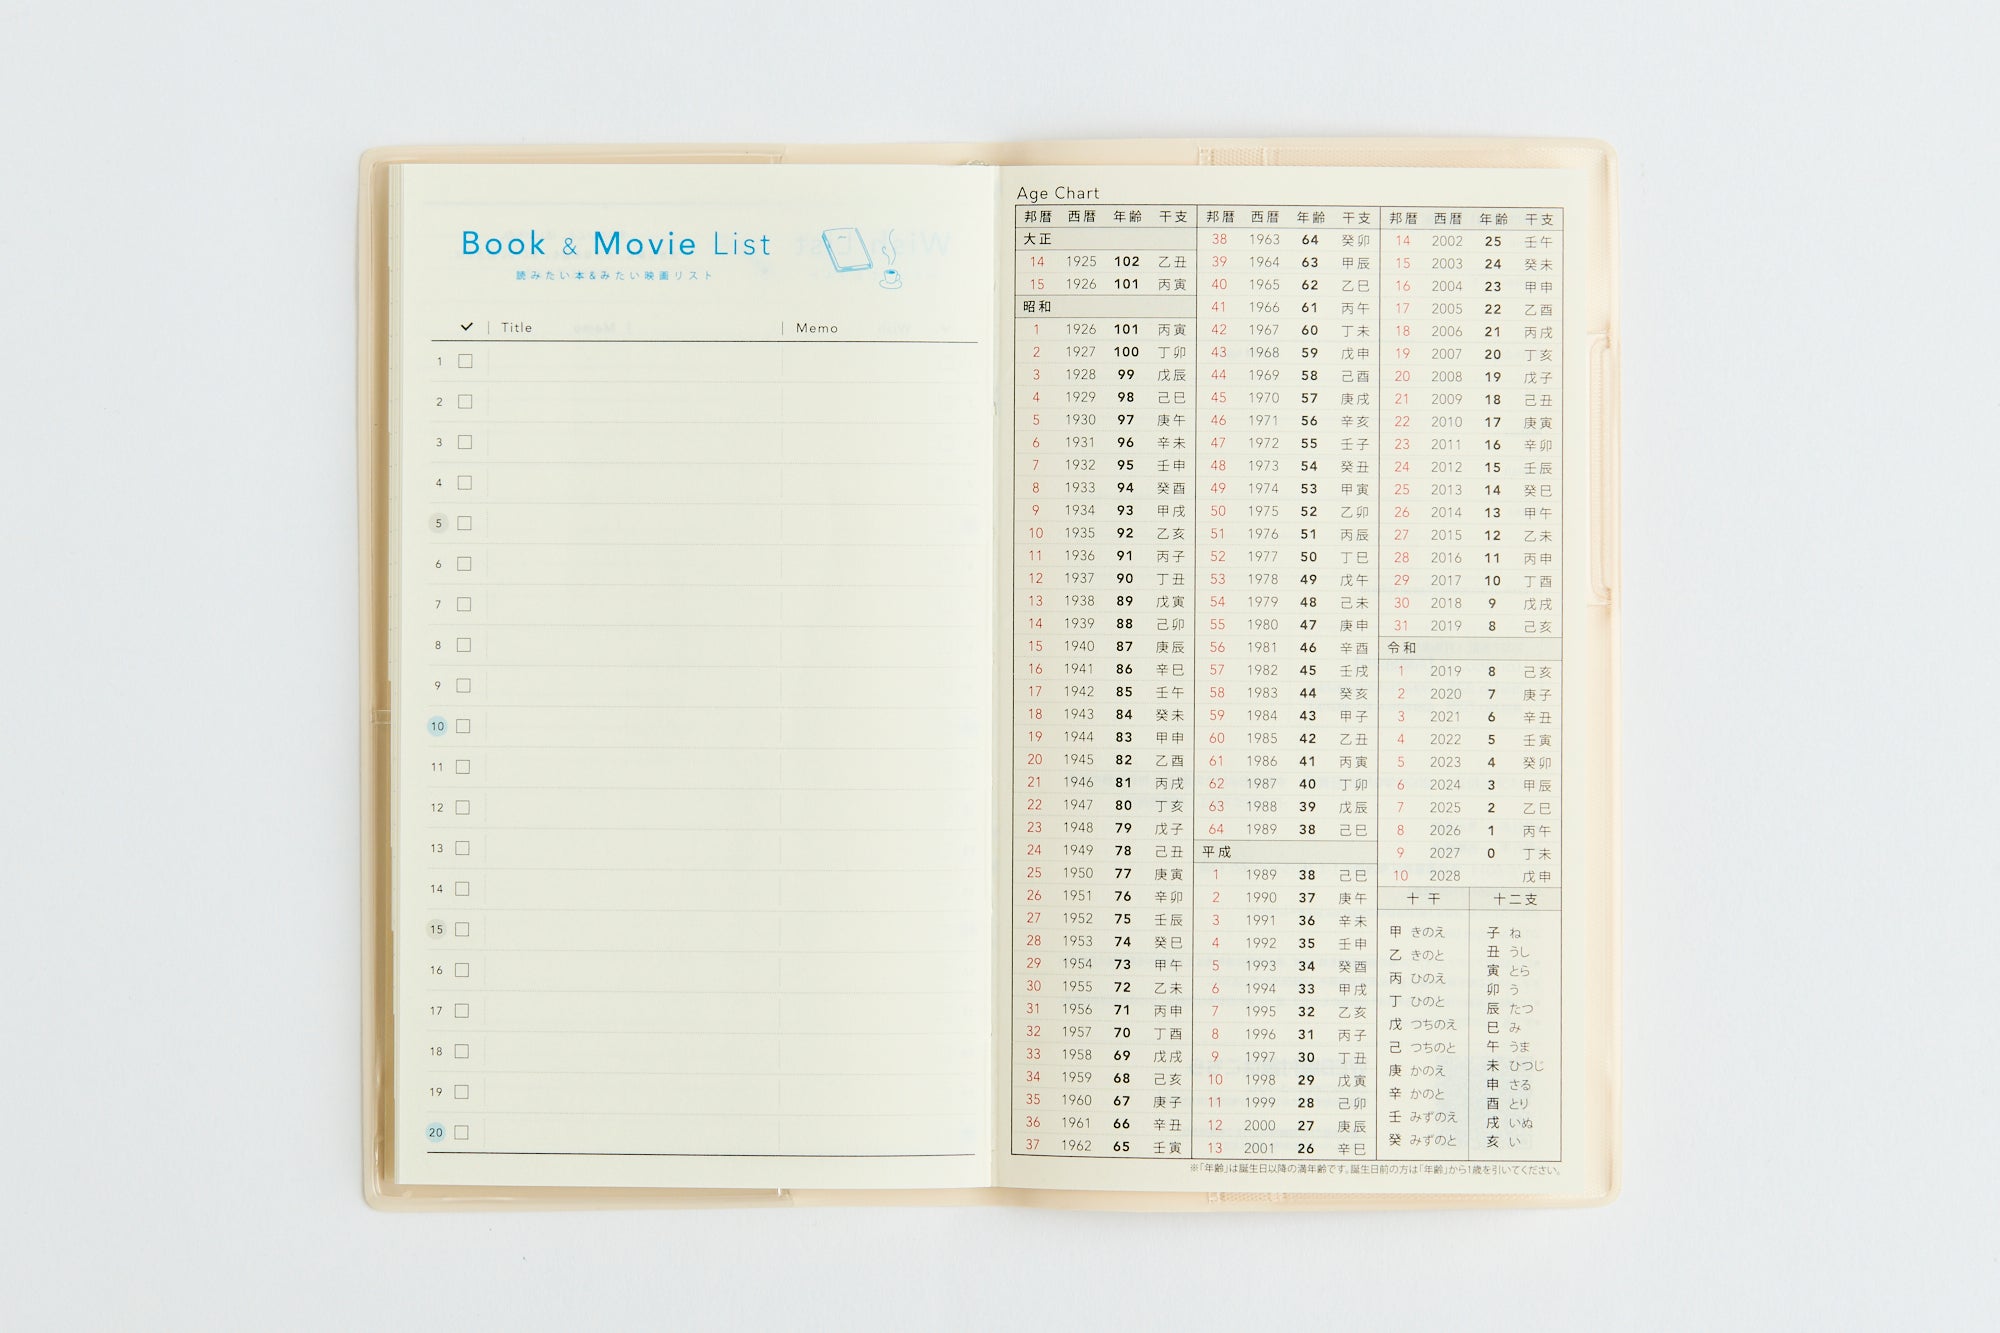 Book & Movie List
読みたい本&みたい映画リスト
✓ | Title | Memo
1
2
3
4
5
6
7
8
9
10
11
12
13
14
15
16
17
18
19
20
Age Chart
邦暦 西暦 年齢 干支
大正
14 1925 102 乙丑
15 1926 101 丙寅
昭和
1 1926 101 丙寅
2 1927 100 丁卯
3 1928 99 戊辰
4 1929 98 己巳
5 1930 97 庚午
6 1931 96 辛未
7 1932 95 壬申
8 1933 94 癸酉
9 1934 93 甲戌
10 1935 92 乙亥
11 1936 91 丙子
12 1937 90 丁丑
13 1938 89 戊寅
14 1939 88 己卯
15 1940 87 庚辰
16 1941 86 辛巳
17 1942 85 壬午
18 1943 84 癸未
19 1944 83 甲申
20 1945 82 乙酉
21 1946 81 丙戌
22 1947 80 丁亥
23 1948 79 戊子
24 1949 78 己丑
25 1950 77 庚寅
26 1951 76 辛卯
27 1952 75 壬辰
28 1953 74 癸巳
29 1954 73 甲午
30 1955 72 乙未
31 1956 71 丙申
32 1957 70 丁酉
33 1958 69 戊戌
34 1959 68 己亥
35 1960 67 庚子
36 1961 66 辛丑
37 1962 65 壬寅
邦暦 西暦 年齢 干支
38 1963 64 癸卯
39 1964 63 甲辰
40 1965 62 乙巳
41 1966 61 丙午
42 1967 60 丁未
43 1968 59 戊申
44 1969 58 己酉
45 1970 57 庚戌
46 1971 56 辛亥
47 1972 55 壬子
48 1973 54 癸丑
49 1974 53 甲寅
50 1975 52 乙卯
51 1976 51 丙辰
52 1977 50 丁巳
53 1978 49 戊午
54 1979 48 己未
55 1980 47 庚申
56 1981 46 辛酉
57 1982 45 壬戌
58 1983 44 癸亥
59 1984 43 甲子
60 1985 42 乙丑
61 1986 41 丙寅
62 1987 40 丁卯
63 1988 39 戊辰
64 1989 38 己巳
平成
1 1989 38 己巳
2 1990 37 庚午
3 1991 36 辛未
4 1992 35 壬申
5 1993 34 癸酉
6 1994 33 甲戌
7 1995 32 乙亥
8 1996 31 丙子
9 1997 30 丁丑
10 1998 29 戊寅
11 1999 28 己卯
12 2000 27 庚辰
13 2001 26 辛巳
邦暦 西暦 年齢 干支
14 2002 25 壬午
15 2003 24 癸未
16 2004 23 甲申
17 2005 22 乙酉
18 2006 21 丙戌
19 2007 20 丁亥
20 2008 19 戊子
21 2009 18 己丑
22 2010 17 庚寅
23 2011 16 辛卯
24 2012 15 壬辰
25 2013 14 癸巳
26 2014 13 甲午
27 2015 12 乙未
28 2016 11 丙申
29 2017 10 丁酉
30 2018 9 戊戌
31 2019 8 己亥
令和
1 2019 8 己亥
2 2020 7 庚子
3 2021 6 辛丑
4 2022 5 壬寅
5 2023 4 癸卯
6 2024 3 甲辰
7 2025 2 乙巳
8 2026 1 丙午
9 2027 0 丁未
10 2028 戊申
十干
甲 きのえ
乙 きのと
丙 ひのえ
丁 ひのと
戊 つちのえ
己 つちのと
庚 かのえ
辛 かのと
壬 みずのえ
癸 みずのと
十二支
子 ね
丑 うし
寅 とら
卯 う
辰 たつ
巳 み
午 うま
未 ひつじ
申 さる
酉 とり
戌 いぬ
亥 い
※「年齢」は誕生日以降の満年齢です。誕生日前の方は「年齢」から1歳を引いてください。